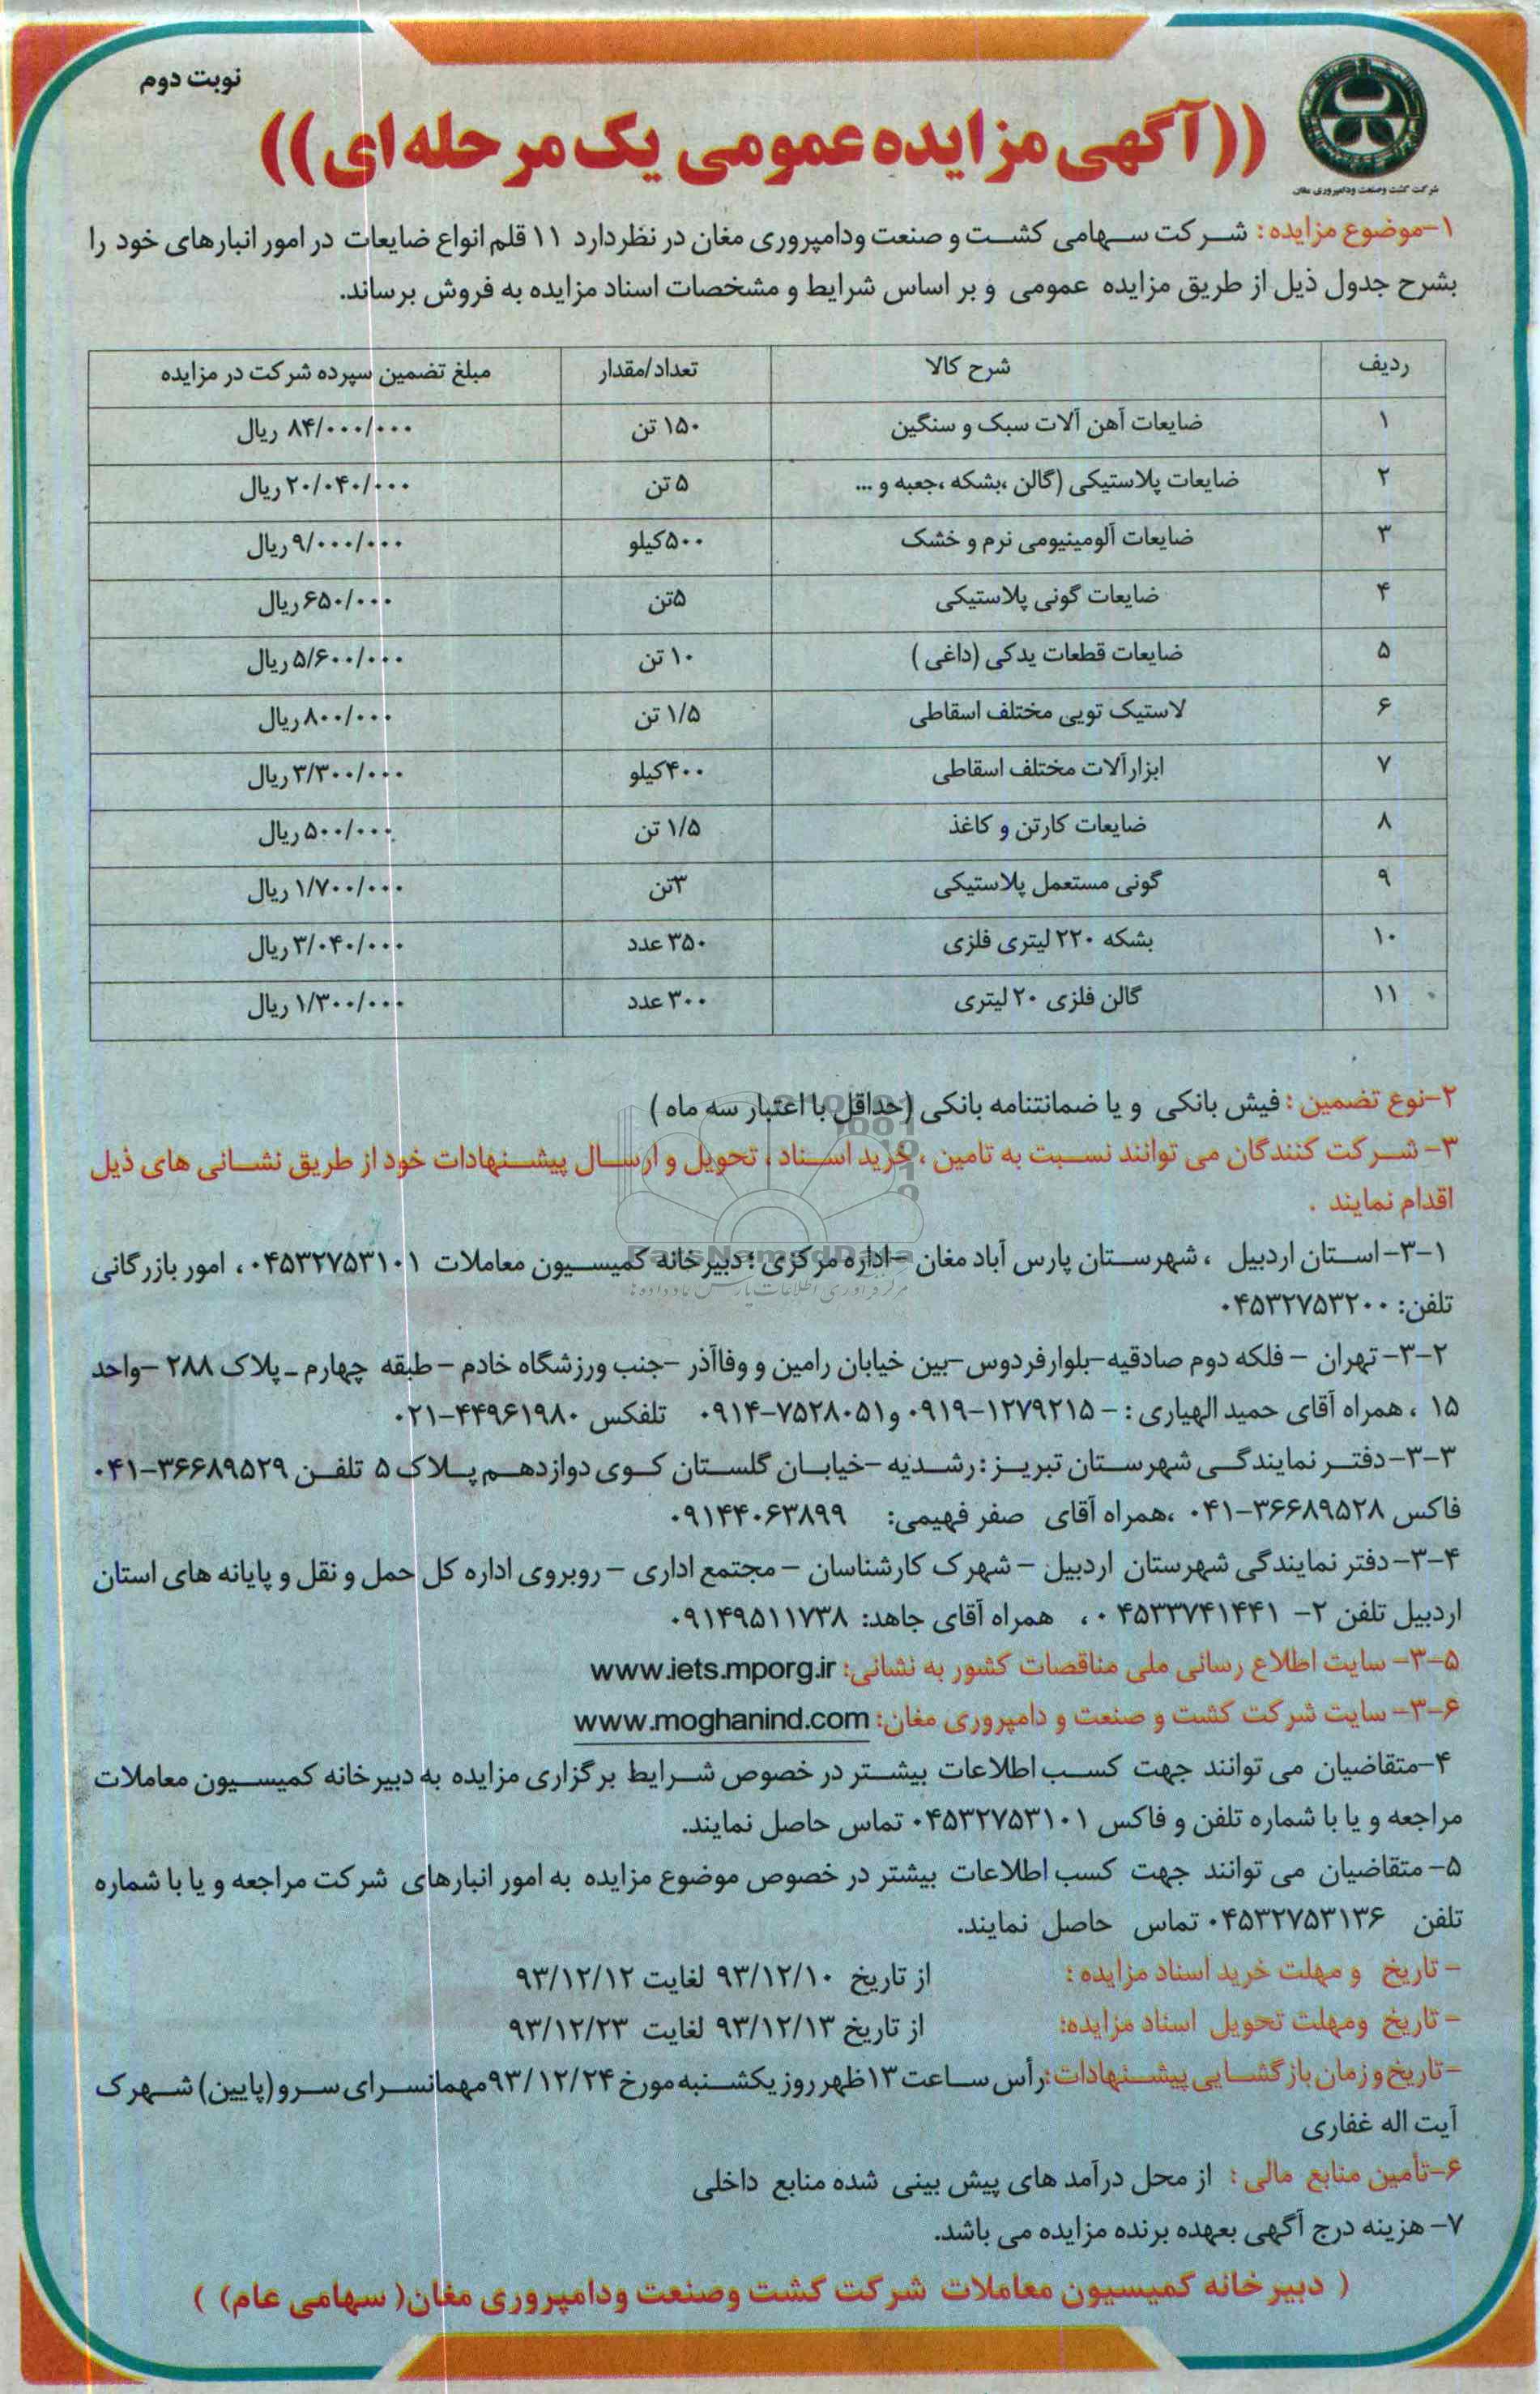 نوبت دوم
((آگهی مزایده عمومی یک مرحله ای))
شرکت کشت وصنعت ودامپروری مغان
۱-موضوع مزایده : شرکت سهامی کشت و صنعت ودامپروری مغان در نظردارد ۱۱ قلم انواع ضایعات در امور انبارهای خود را
بشرح جدول ذیل از طریق مزایده عمومی و بر اساس شرایط و مشخصات اسناد مزایده به فروش برساند.
ردیف شرح کالا تعداد/مقدار مبلغ تضمین سپرده شرکت در مزایده
۱ ضایعات آهن آلات سبک و سنگین ۱۵۰ تن ۸۴/۰۰۰/۰۰۰ ریال
۲ ضایعات پلاستیکی (گالن ،بشکه ،جعبه و ... ۵ تن ۲۰/۰۴۰/۰۰۰ ریال
۳ ضایعات آلومینیومی نرم و خشک ۵۰۰کیلو ۹/۰۰۰/۰۰۰ ریال
۴ ضایعات گونی پلاستیکی ۵تن ۶۵۰/۰۰۰ ریال
۵ ضایعات قطعات یدکی (داغی ) ۱۰ تن ۵/۶۰۰/۰۰۰ ریال
۶ لاستیک تویی مختلف اسقاطی ۱/۵ تن ۸۰۰/۰۰۰ ریال
۷ ابزارآلات مختلف اسقاطی ۴۰۰کیلو ۳/۳۰۰/۰۰۰ ریال
۸ ضایعات کارتن و کاغذ ۱/۵ تن ۵۰۰/۰۰۰ ریال
۹ گونی مستعمل پلاستیکی ۳تن ۱/۷۰۰/۰۰۰ ریال
۱۰ بشکه ۲۲۰ لیتری فلزی ۳۵۰ عدد ۳/۰۴۰/۰۰۰ ریال
۱۱ گالن فلزی ۲۰ لیتری ۳۰۰ عدد ۱/۳۰۰/۰۰۰ ریال
۲-نوع تضمین : فیش بانکی و یا ضمانتنامه بانکی (حداقل با اعتبار سه ماه )
۳- شرکت کنندگان می توانند نسبت به تامین ، خرید اسناد ، تحویل و ارسال پیشنهادات خود از طریق نشانی های ذیل
اقدام نمایند .
۳-۱-استان اردبیل ، شهرستان پارس آباد مغان -اداره مرکزی ؛ دبیرخانه کمیسیون معاملات ۰۴۵۳۲۷۵۳۱۰۱ ، امور بازرگانی
ParsNamadData
مرکز فرآوری اطلاعات پارس نماد داده ها
تلفن: ۰۴۵۳۲۷۵۳۲۰۰
۳-۲- تهران - فلکه دوم صادقیه-بلوارفردوس-بین خیابان رامین و وفاآذر -جنب ورزشگاه خادم - طبقه چهارم -پلاک ۲۸۸ -واحد
۱۵ ، همراه آقای حمید الهیاری : - ۱۲۷۹۲۱۵-۰۹۱۹ و۷۵۲۸۰۵۱-۰۹۱۴ تلفکس ۴۴۹۶۱۹۸۰-۰۲۱
۳-۳-دفتر نمایندگی شهرستان تبریز : رشدیه -خیابان گلستان کوی دوازدهم پلاک ۵ تلفن ۳۶۶۸۹۵۲۹-۰۴۱
فاکس ۳۶۶۸۹۵۲۸-۰۴۱ ،همراه آقای صفر فهیمی: ۰۹۱۴۴۰۶۳۸۹۹
۳-۴-دفتر نمایندگی شهرستان اردبیل - شهرک کارشناسان - مجتمع اداری - روبروی اداره کل حمل و نقل و پایانه های استان
اردبیل تلفن ۲- ۰۴۵۳۳۷۴۱۴۴۱ ، همراه آقای جاهد: ۰۹۱۴۹۵۱۱۷۳۸
۳-۵- سایت اطلاع رسانی ملی مناقصات کشور به نشانی: www.iets.mporg.ir
۳-۶- سایت شرکت کشت و صنعت و دامپروری مغان: www.moghanind.com
۴-متقاضیان می توانند جهت کسب اطلاعات بیشتر در خصوص شرایط برگزاری مزایده به دبیرخانه کمیسیون معاملات
مراجعه و یا با شماره تلفن و فاکس ۰۴۵۳۲۷۵۳۱۰۱ تماس حاصل نمایند.
۵- متقاضیان می توانند جهت کسب اطلاعات بیشتر در خصوص موضوع مزایده به امور انبارهای شرکت مراجعه و یا با شماره
تلفن ۰۴۵۳۲۷۵۳۱۳۶ تماس حاصل نمایند.
- تاریخ و مهلت خرید اسناد مزایده : از تاریخ ۹۳/۱۲/۱۰ لغایت ۹۳/۱۲/۱۲
- تاریخ ومهلت تحویل اسناد مزایده: از تاریخ ۹۳/۱۲/۱۳ لغایت ۹۳/۱۲/۲۳
-تاریخ و زمان بازگشایی پیشنهادات:رأس ساعت ۱۳ظهر روز یکشنبه مورخ ۹۳/۱۲/۲۴مهمانسرای سرو(پایین) شهرک
آیت اله غفاری
۶-تأمین منابع مالی : از محل درآمد های پیش بینی شده منابع داخلی
۷- هزینه درج آگهی بعهده برنده مزایده می باشد.
( دبیرخانه کمیسیون معاملات شرکت کشت وصنعت ودامپروری مغان( سهامی عام) )